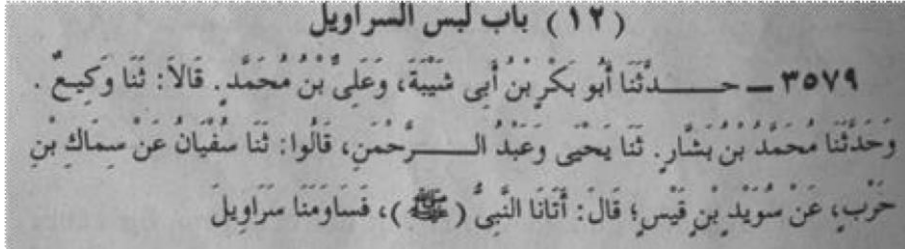 (١٢) باب لبس السراويل
٣٥٧٩ ــ حـــــدَّثَنَا أَبُو بَكْرِ بْنُ أَبِى شَيْبَةَ، وَعَلِىُّ بْنُ مُحَمَّدٍ. قَالاَ: ثَنَا وَكِيـعٌ .
وَحَدَّثَنَا مُحَمَّدُ بْنُ بَشَّارٍ. ثَنَا يَحْيَى وَعَبْدُ الـــــرَّحْمَنِ، قَالُوا: ثَنَا سُفْيَانُ عَنْ سِمَاكِ بْنِ
حَرْبٍ، عَنْ سُوَيْدِ بْنِ قَيْسٍ؛ قَالَ: أَتَانَا النَّبِىُّ (ﷺ)، فَسَاوَمَنَا سَرَاوِيلَ